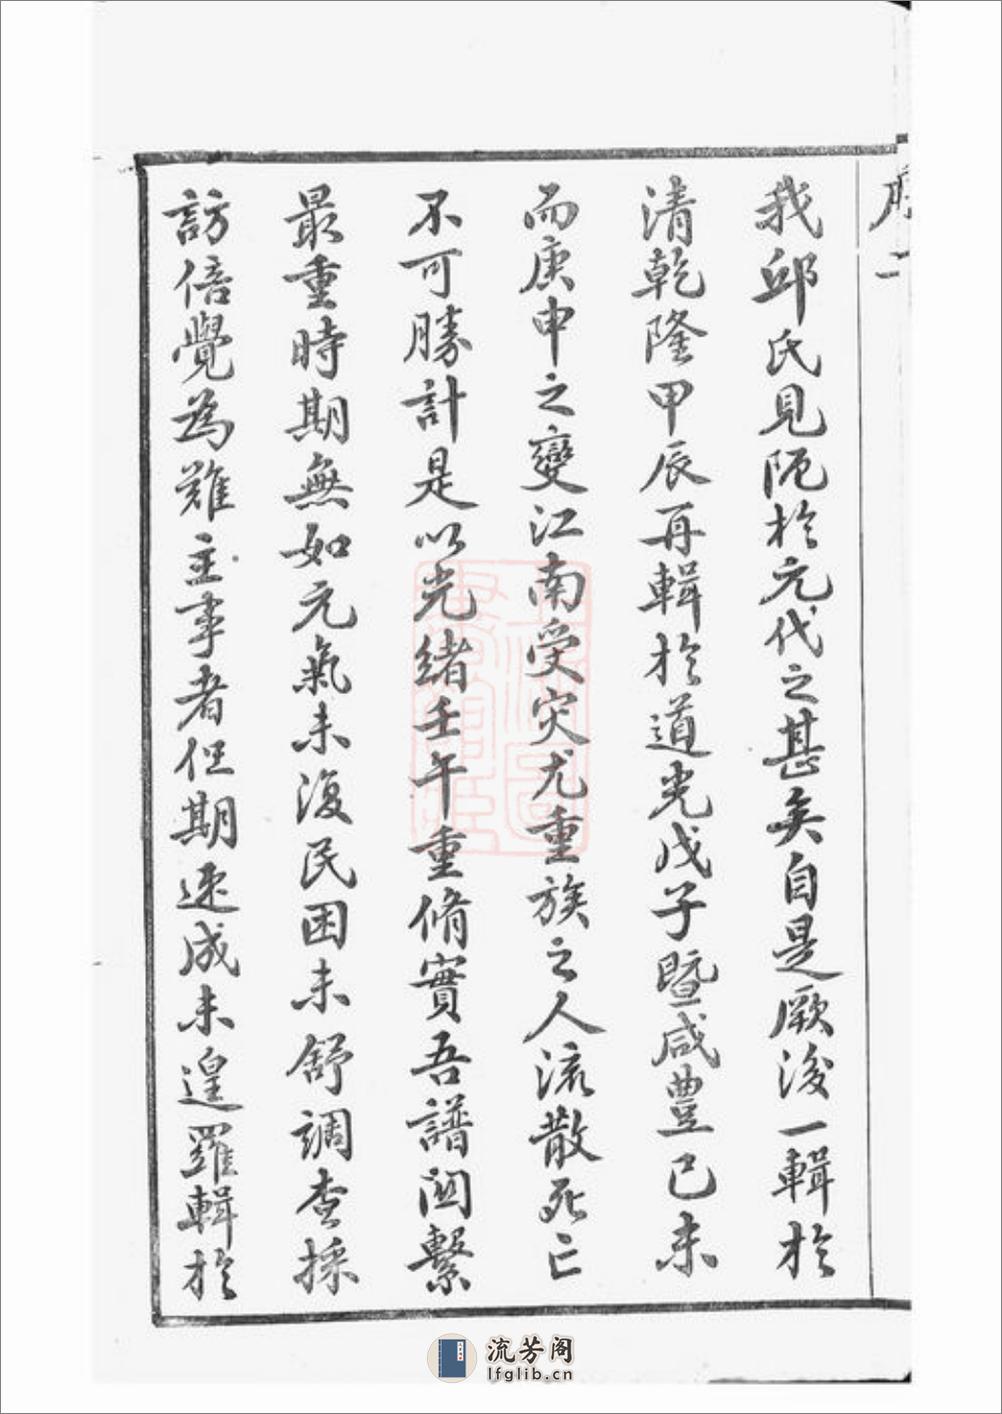 序 二
我邱氏見阨於元代之甚矣自是厥後一輯於
清乾隆甲辰再輯於道光戊子暨咸豐己未
而庚申之變江南受災尤重族之人流散死亡
不可勝計是以光緒壬午重脩實吾譜関繫
最重時期無如元氣未復民困未舒調查採
訪倍覺為難主事者但期速成未遑羅輯於
流芳阁
lfglib.cn